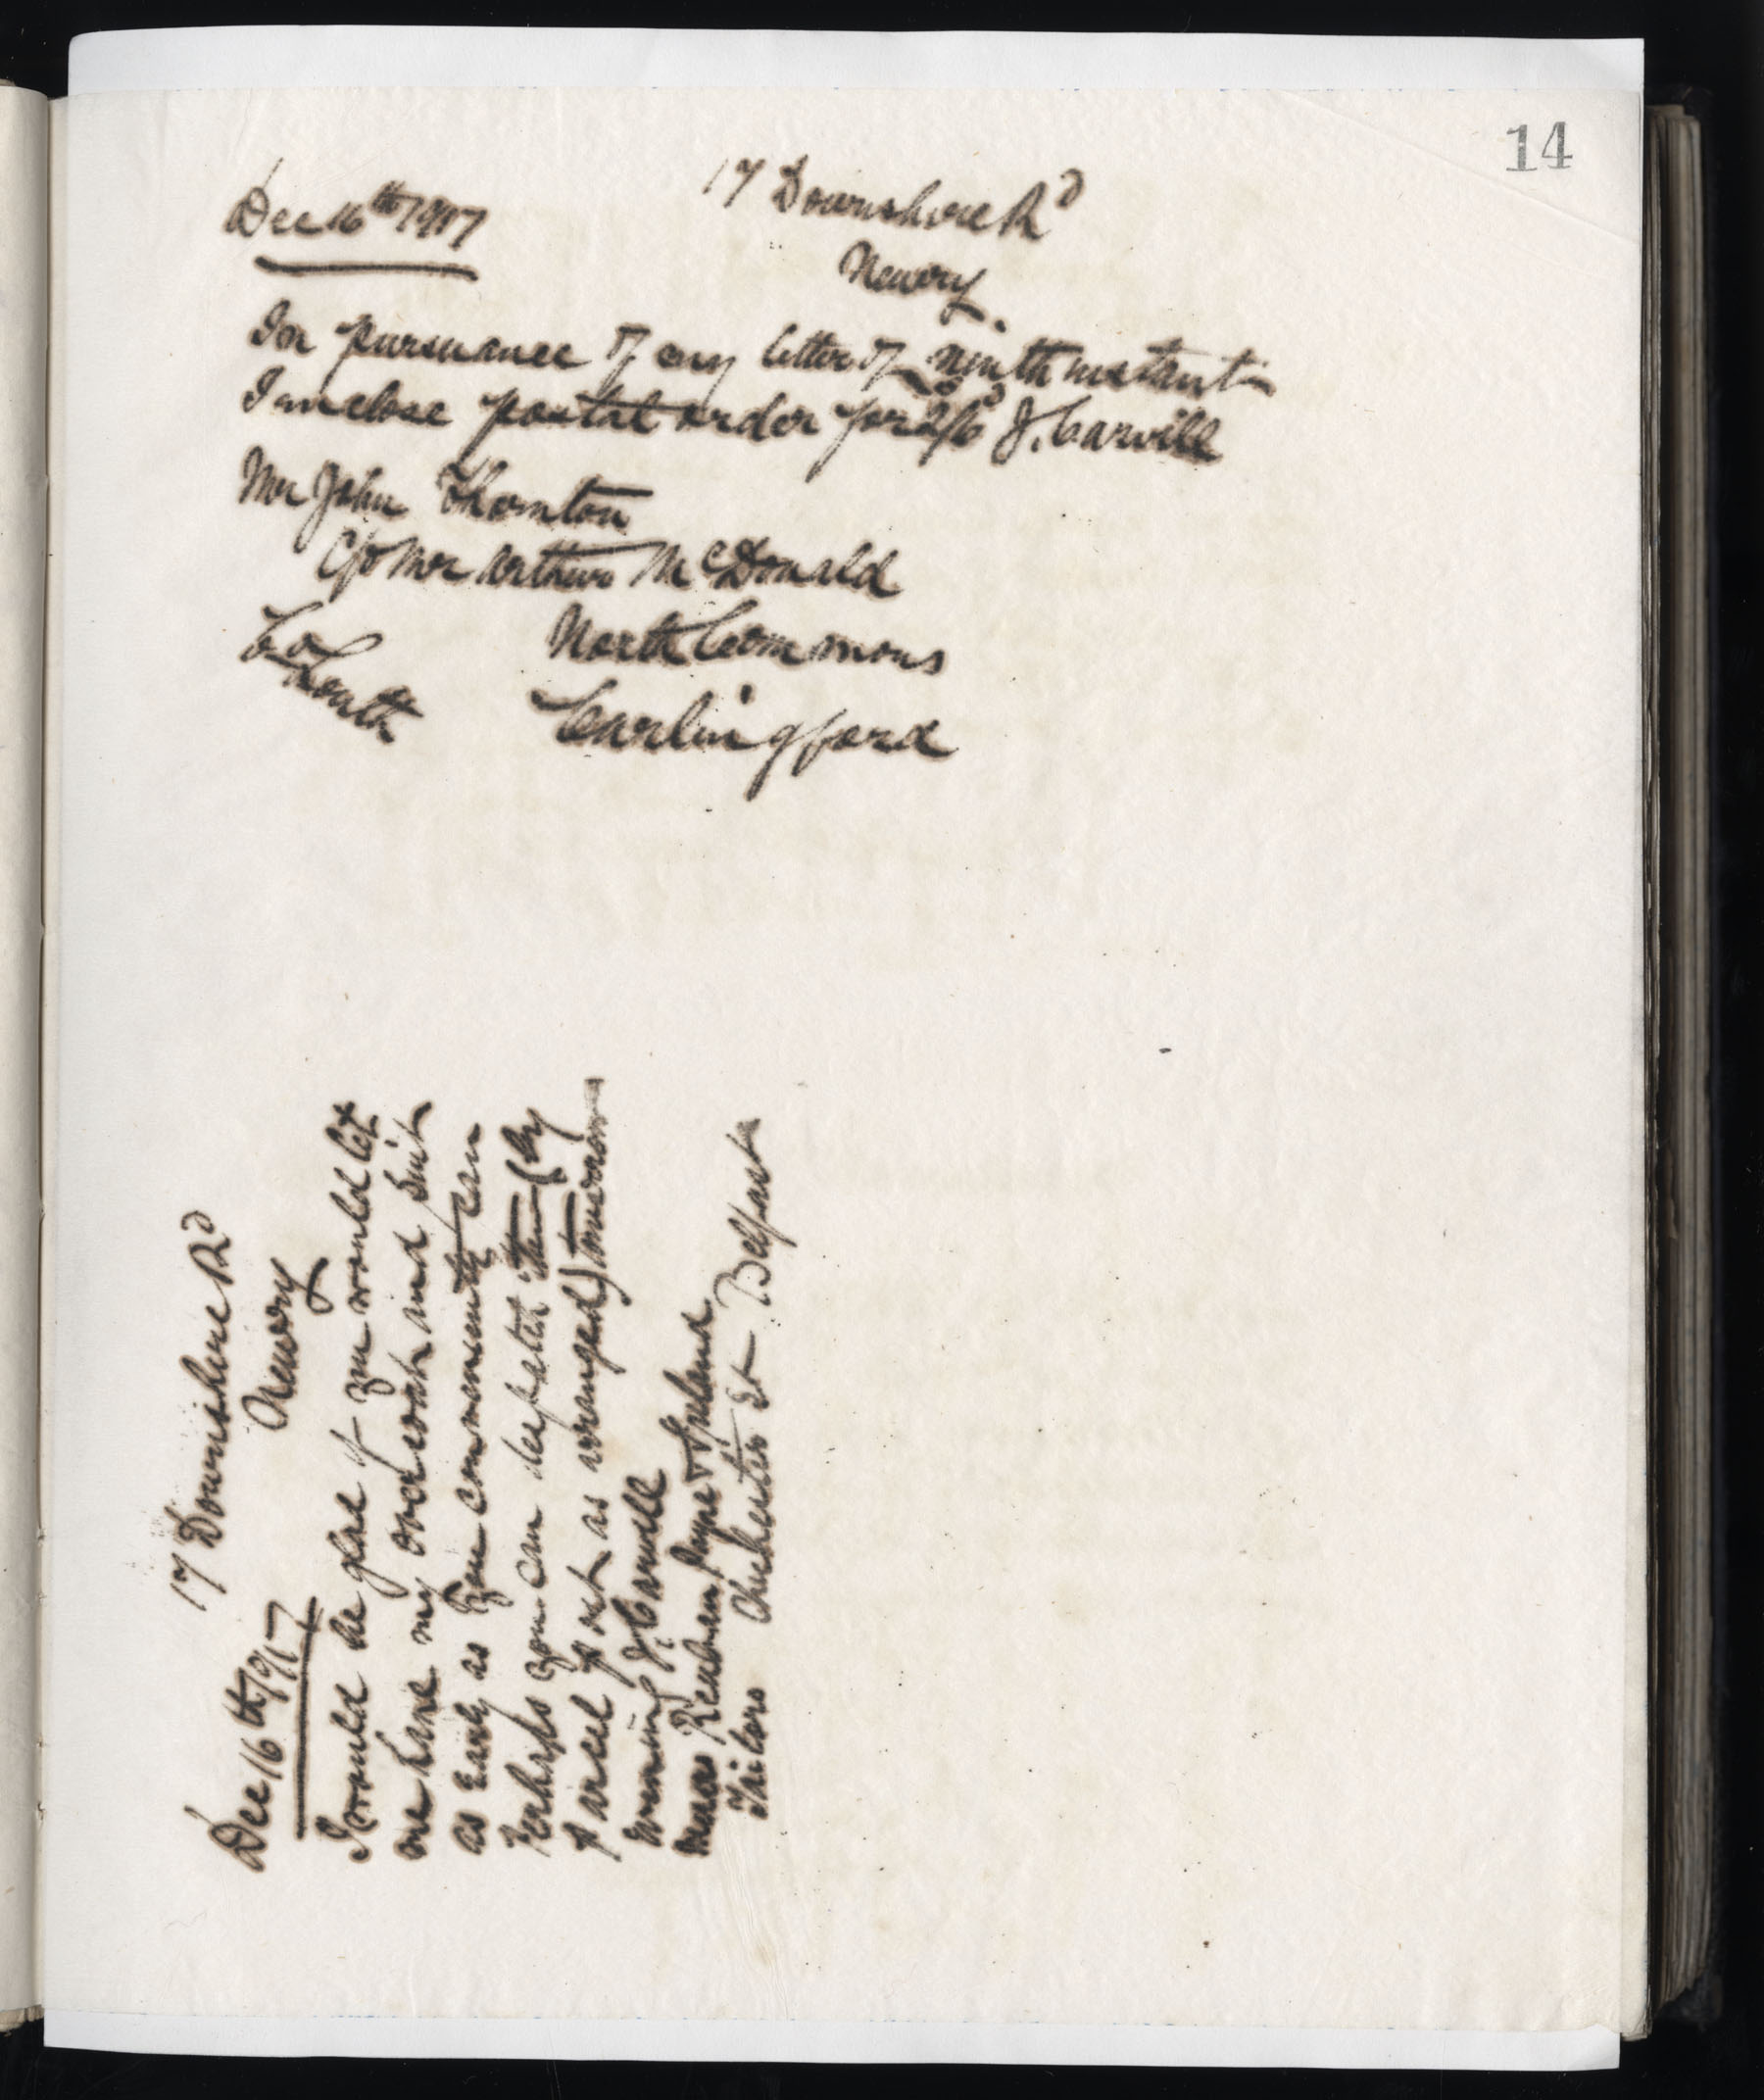 14
Dec 16th 1917
17 Downshire Rd
Newry
In pursuance of my letter of ninth instant
I inclose postal order for 2/6d J. Carvill
Mr John Thornton
C/o Mr Arthur McDonald
North Commons
Carlingford
Co Louth
Dec 16th 1917
17 Downshire Rd
Newry
I would be glad if you would let
me have my overcoat and suit
as early as you conveniently can
Perhaps you can despatch them (by
parcel post as arranged) tomorrow
evening J. Carvill
Messrs Reuben Payne & Ireland
Tailors Chichester St Belfast